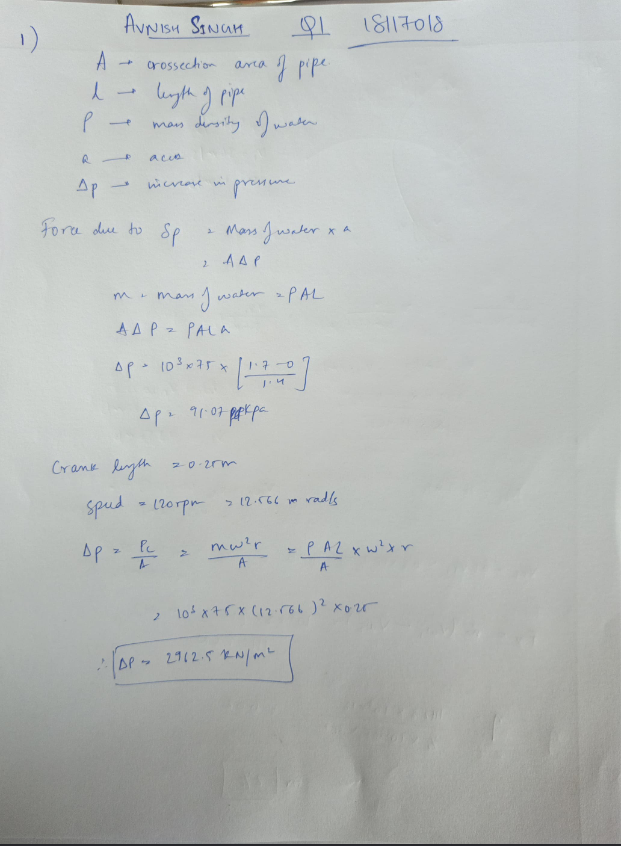 AVNISH SINGH Q1 18117018
1)
A → crossection area of pipe
L → length of pipe
ρ → mass density of water
a → accn
Δp → increase in pressure
Force due to δp = Mass of water x a
= A Δ P
m = mass of water = ρAL
A Δ P = ρALa
Δp = 10³ x 75 x [1.7 - 0 / 1.4]
Δp = 91.07 kpa
Crank length = 0.25m
speed = 120rpm = 12.566 rad/s
Δp = Pc/A = mω²r/A = ρAL/A x ω² x r
= 10³ x 75 x (12.566)² x 0.25
∴ ΔP = 2962.5 KN/m²